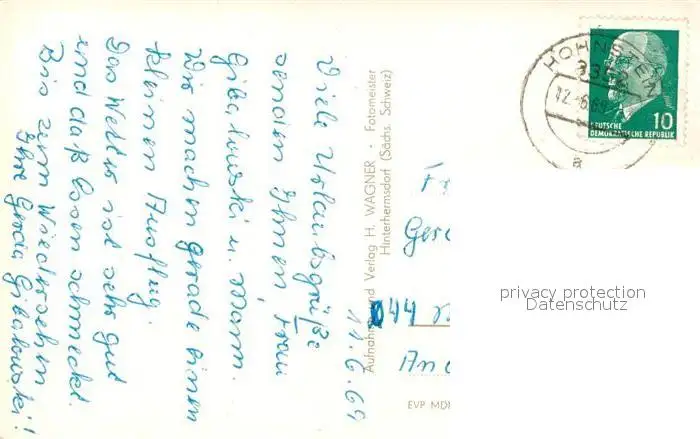 11.6.69
Viele Urlaubsgrüße
senden Ihnen Frau
Gibalowski u. Mann.
Wir machen gerade einen
kleinen Ausflug.
Das Wetter ist sehr gut
und daß Essen schmeckt.
Bis zum Wiedersehen
Ihre Gerda Gibalowski!
Aufnahme und Verlag H. WAGNER · Fotomeister
Hinterhermsdorf (Sächs. Schweiz)
HOHNSTEIN
10
DEUTSCHE
DEMOKRATISCHE REPUBLIK
a
044
privacy protection
Datenschutz
EVP MDN